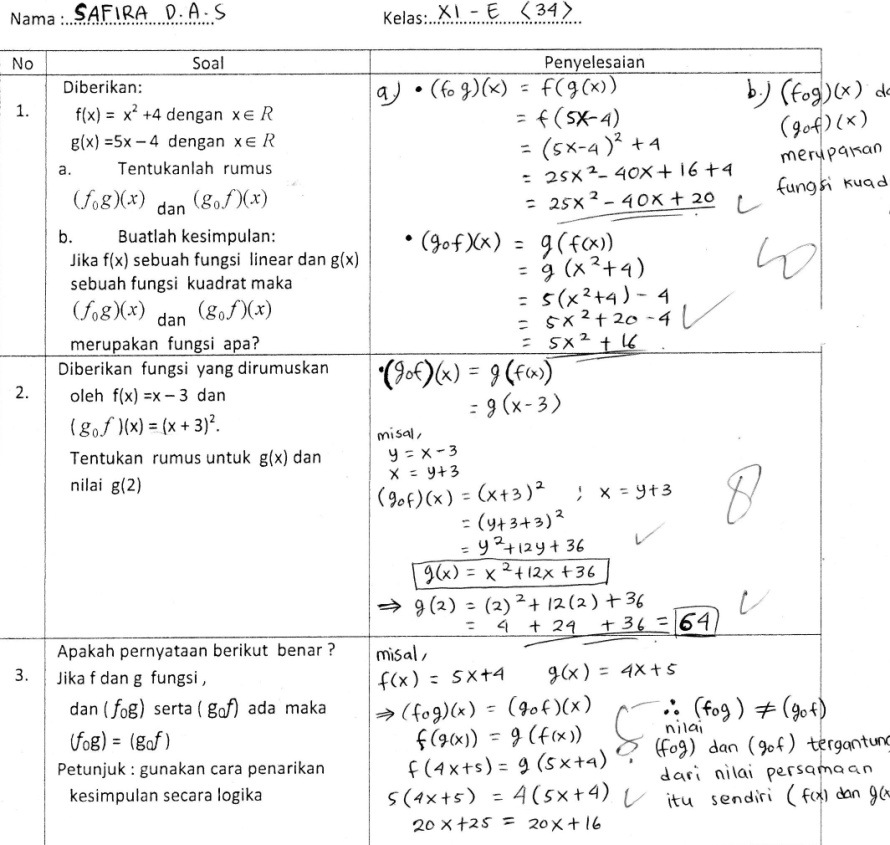 Nama : SAFIRA D.A.S Kelas: XI - E <34>
No Soal Penyelesaian
1. Diberikan:
f(x) = x² +4 dengan x ∈ R
g(x) =5x – 4 dengan x ∈ R
a. Tentukanlah rumus
(f₀g)(x) dan (g₀f)(x)
b. Buatlah kesimpulan:
Jika f(x) sebuah fungsi linear dan g(x)
sebuah fungsi kuadrat maka
(f₀g)(x) dan (g₀f)(x)
merupakan fungsi apa?
a) • (fog)(x) = f(g(x))
= f(5x-4)
= (5x-4)² + 4
= 25x² - 40x + 16 + 4
= 25x² - 40x + 20
• (gof)(x) = g(f(x))
= g(x²+4)
= 5(x²+4) - 4
= 5x² + 20 - 4
= 5x² + 16
b.) (fog)(x)
(gof)(x)
merupakan
fungsi
2. Diberikan fungsi yang dirumuskan
oleh f(x) =x – 3 dan
(g₀f)(x) = (x + 3)².
Tentukan rumus untuk g(x) dan
nilai g(2)
•(gof)(x) = g(f(x))
= g(x-3)
misal,
y = x-3
x = y+3
(gof)(x) = (x+3)² ; x = y+3
= (y+3+3)²
= y²+12y+36
g(x) = x²+12x+36
⇒ g(2) = (2)²+12(2)+36
= 4 + 24 + 36 = 64
8
3. Apakah pernyataan berikut benar ?
Jika f dan g fungsi ,
dan (f₀g) serta (g₀f) ada maka
(f₀g) = (g₀f)
Petunjuk : gunakan cara penarikan
kesimpulan secara logika
misal,
f(x) = 5x+4 g(x) = 4x+5
⇒ (fog)(x) = (gof)(x)
f(g(x)) = g(f(x))
f(4x+5) = g(5x+4)
5(4x+5) = 4(5x+4)
20x+25 = 20x+16
∴ (fog) ≠ (gof)
nilai
(fog) dan (gof)
dari nilai persamaan
itu sendiri (f(x) dan